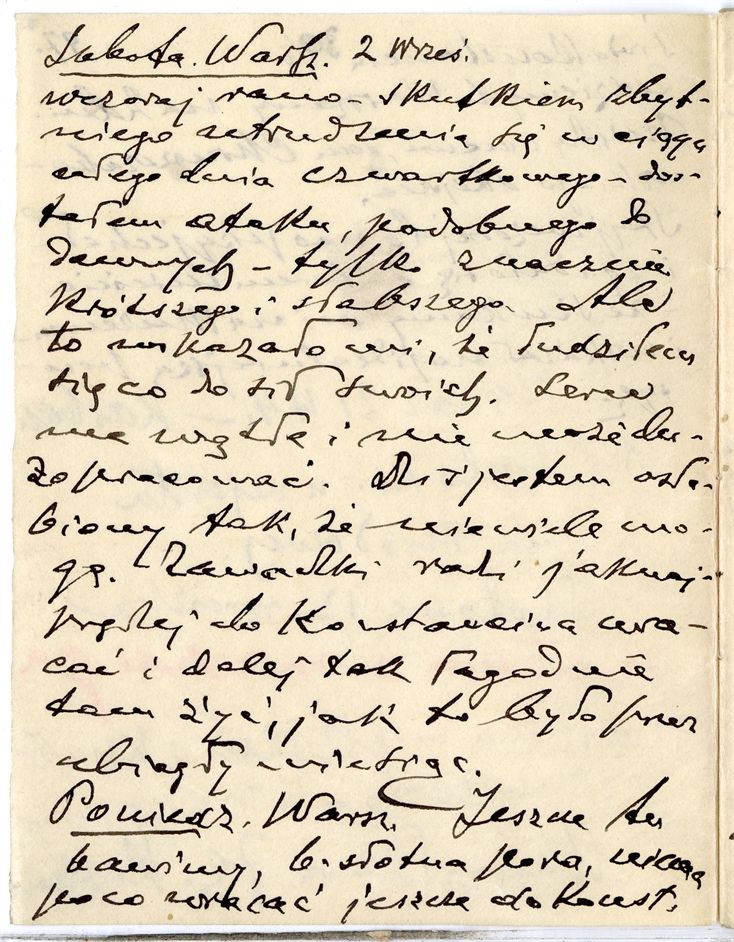 Sobota. Warsz. 2 wrześ.
wczoraj rano – skutkiem zbyt-
niego utrudzenia się w ciągu
całego dnia czwartkowego – dos-
tałem ataku, podobnego do
dawnych – tylko znacznie
krótszego i słabszego. Ale
to wskazało mi, że łudziłem
się co do sił swoich. Serce
me wątłe i nie może du-
żo pracować. Dziś jestem osła-
biony tak, że niewiele mo-
gę. Zawadzki radzi jaknaj-
prędzej do Konstancina wra-
cać i dalej tak łagodnie
tam żyć, jak to było przez
ubiegły miesiąc.
Poniedz. Warsz. Jeszcze tu
bawimy, b. słotna pora, niema
poco wracać jeszcze do Konst.